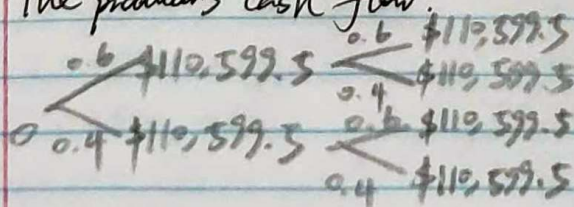 The producers cash flow:
0.6 $110,599.5
0.6 $110,599.5
0.4 $110,599.5
0
0.4 $110,599.5
0.6 $110,599.5
0.4 $110,599.5